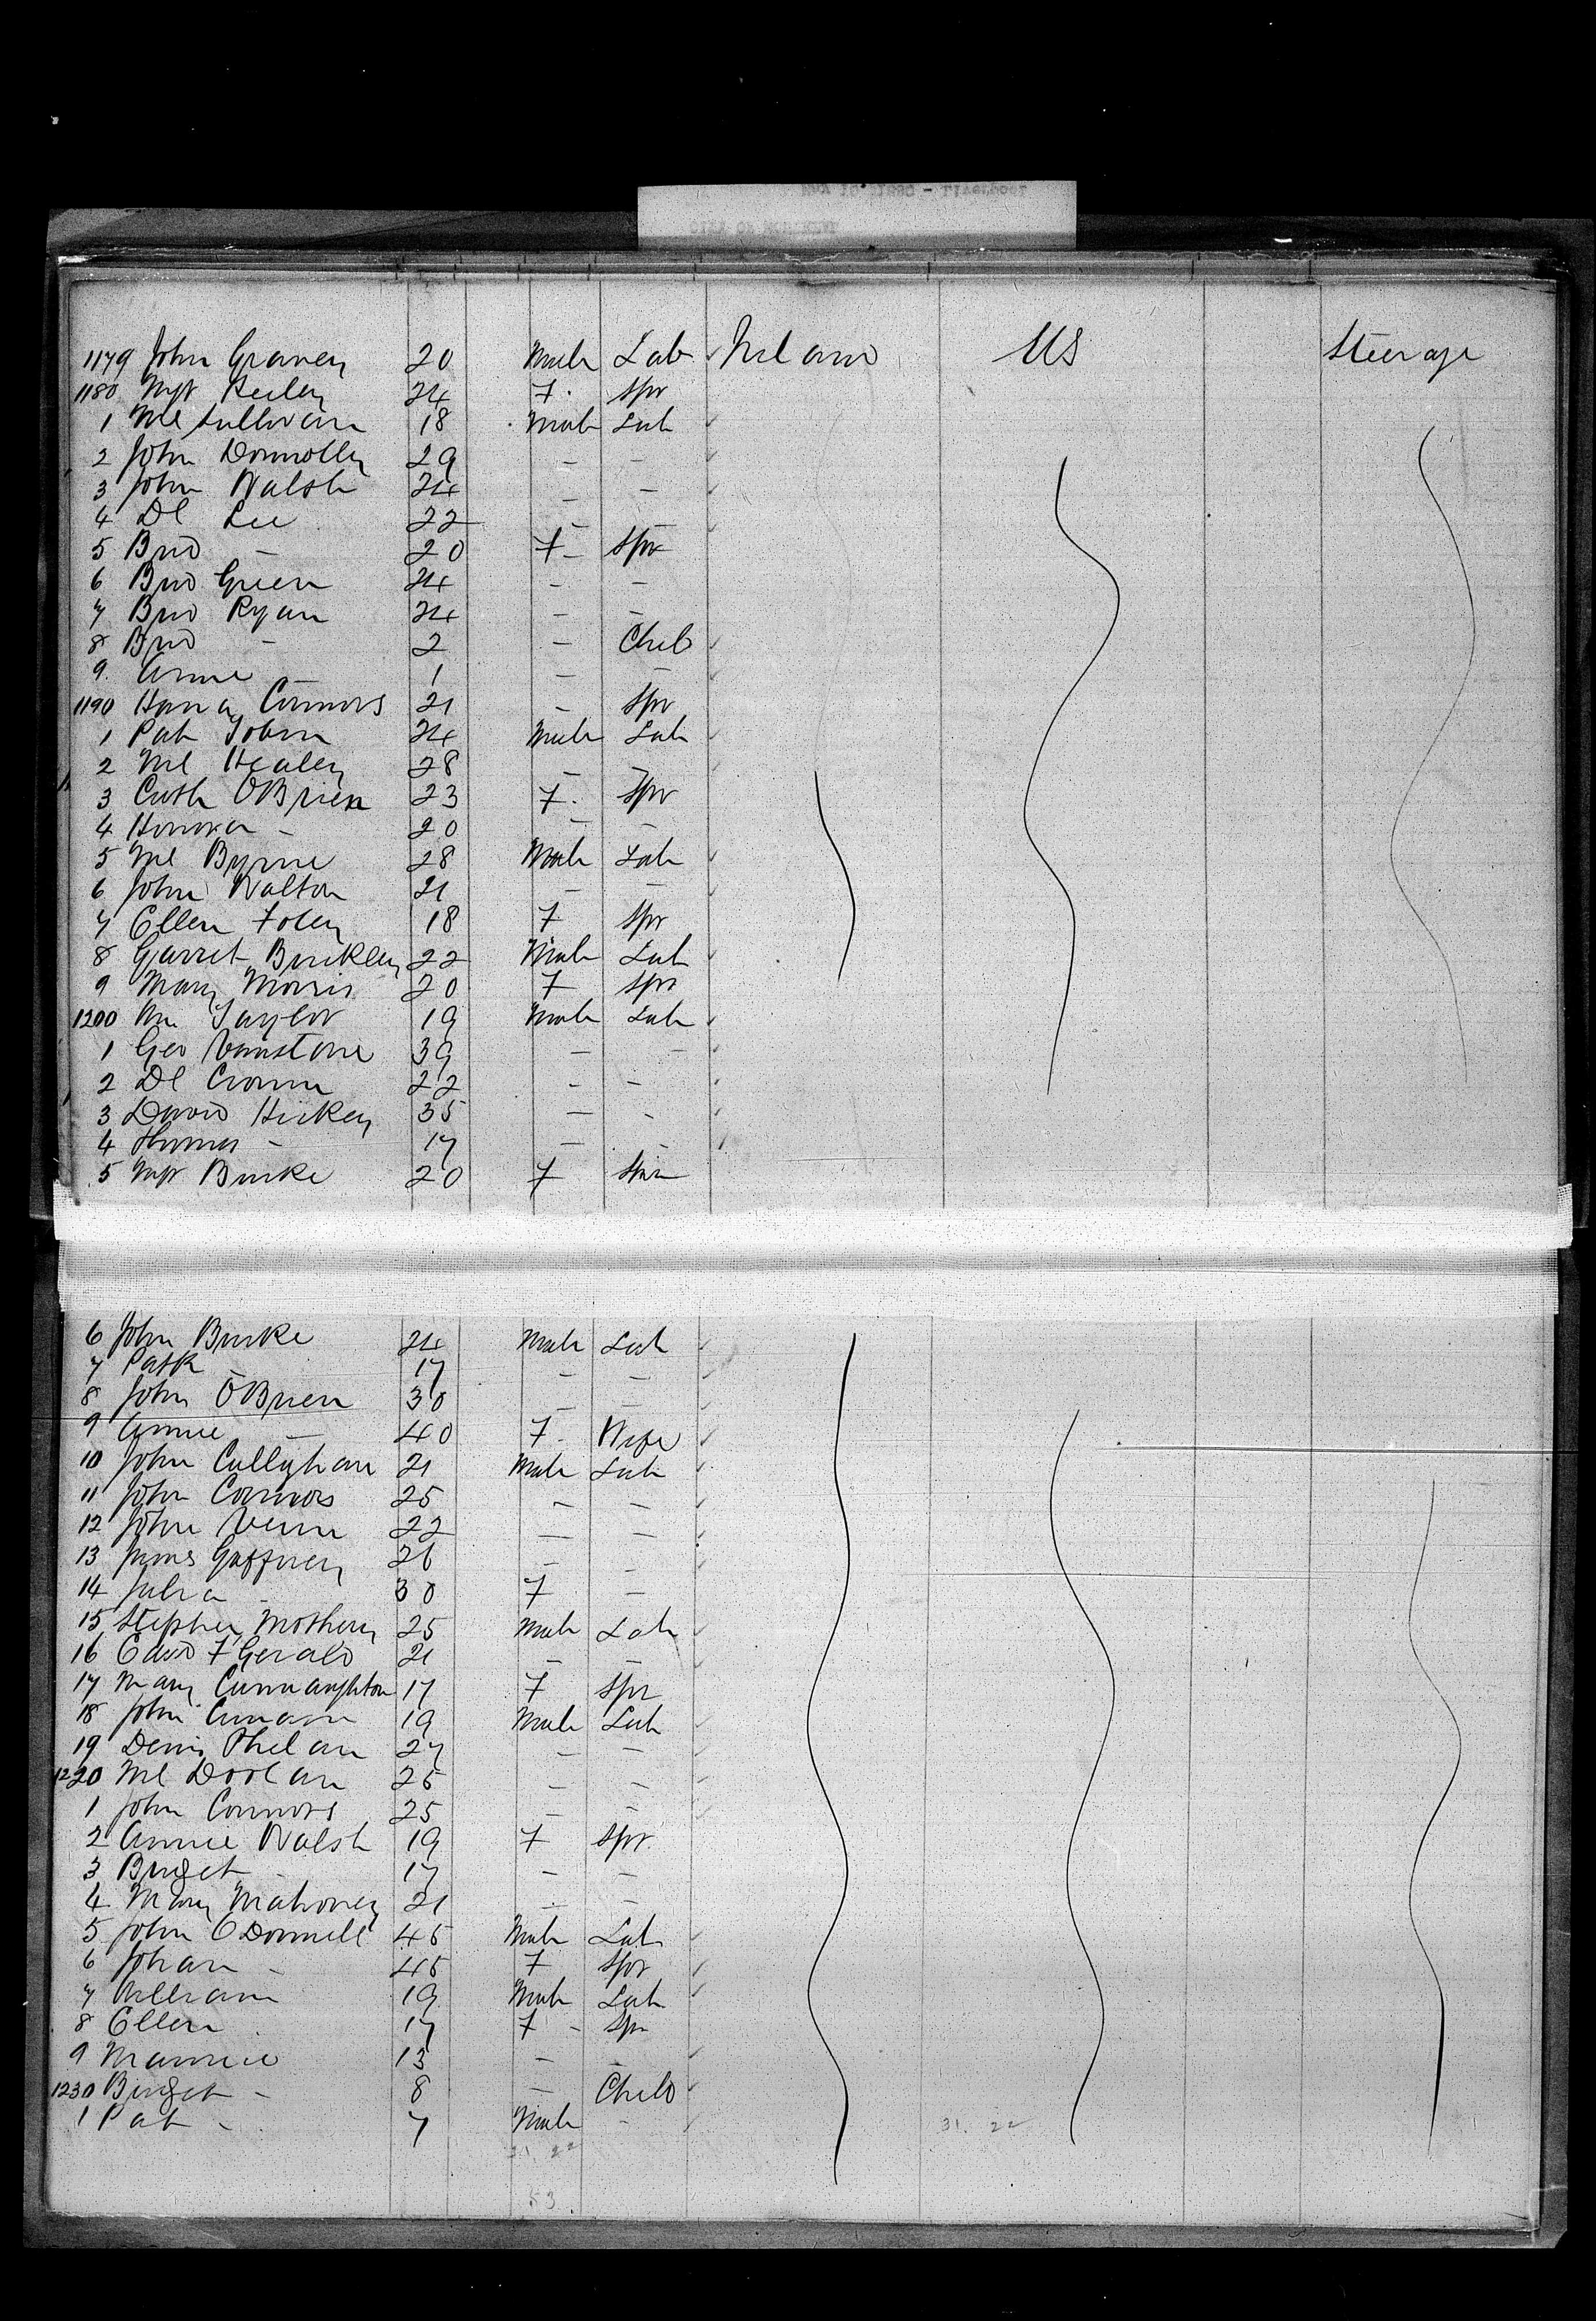 1179 John Graney 20 Male Lab Ireland US Steerage
1180 Mgt Keiley 24 F. Spr
1 Ml Sullivan 18 Male Lab
2 John Donnolly 29 - -
3 John Walsh 24 - -
4 Dl Lee 22 - -
5 Brid - 20 F - Spr
6 Brid Green 24 - -
7 Brid Ryan 24 - -
8 Brid - 2 - Child
9. Annie - 1 - -
1190 Hanna Connors 21 - Spr
1 Pat Tobin 24 Male Lab
2 Ml Healey 28 - -
3 Cath OBrien 23 F. Spr
4 Honora - 20 - -
5 Ml Byrne 28 Male Lab
6 John Walton 21 - -
7 Ellen Foley 18 F Spr
8 Garret Buckley 22 Male Lab
9 Mary Morris 20 F Spr
1200 Wm Taylor 19 Male Lab
1 Geo Vanstone 39 - -
2 Dl Cronin 22 - -
3 David Hickey 35 - -
4 Thomas - 17 - -
5 Mgt Burke 20 F Spr
6 John Burke 24 Male Lab
7 Patk - 17 - -
8 John OBrien 30 - -
9 Annie - 40 F. Wife
10 John Callyhan 21 Male Lab
11 John Connors 25 - -
12 John Venn 22 - -
13 James Gaffney 26 - -
14 Julia - 30 F -
15 Stephen 25 Male Lab
16 Edwd F Gerald 21 - -
17 Mary Cunnanghton 17 F Spr
18 John 19 Male Lab
19 Denis Phelan 27 - -
1220 Ml Doolan 25 - -
1 John Connors 25 - -
2 Annie Walsh 19 F Spr.
3 Bridget - 17 - -
4 Mary Mahoney 21 - -
5 John ODonnell 45 Male Lab
6 Johan - 45 F Spr
7 William 19 Male Lab
8 Ellen 17 F - Spr
9 Mannie 13 - -
1230 Bridget - 8 - Child
1 Pat - 7 Male -
31. 22 31. 22
53